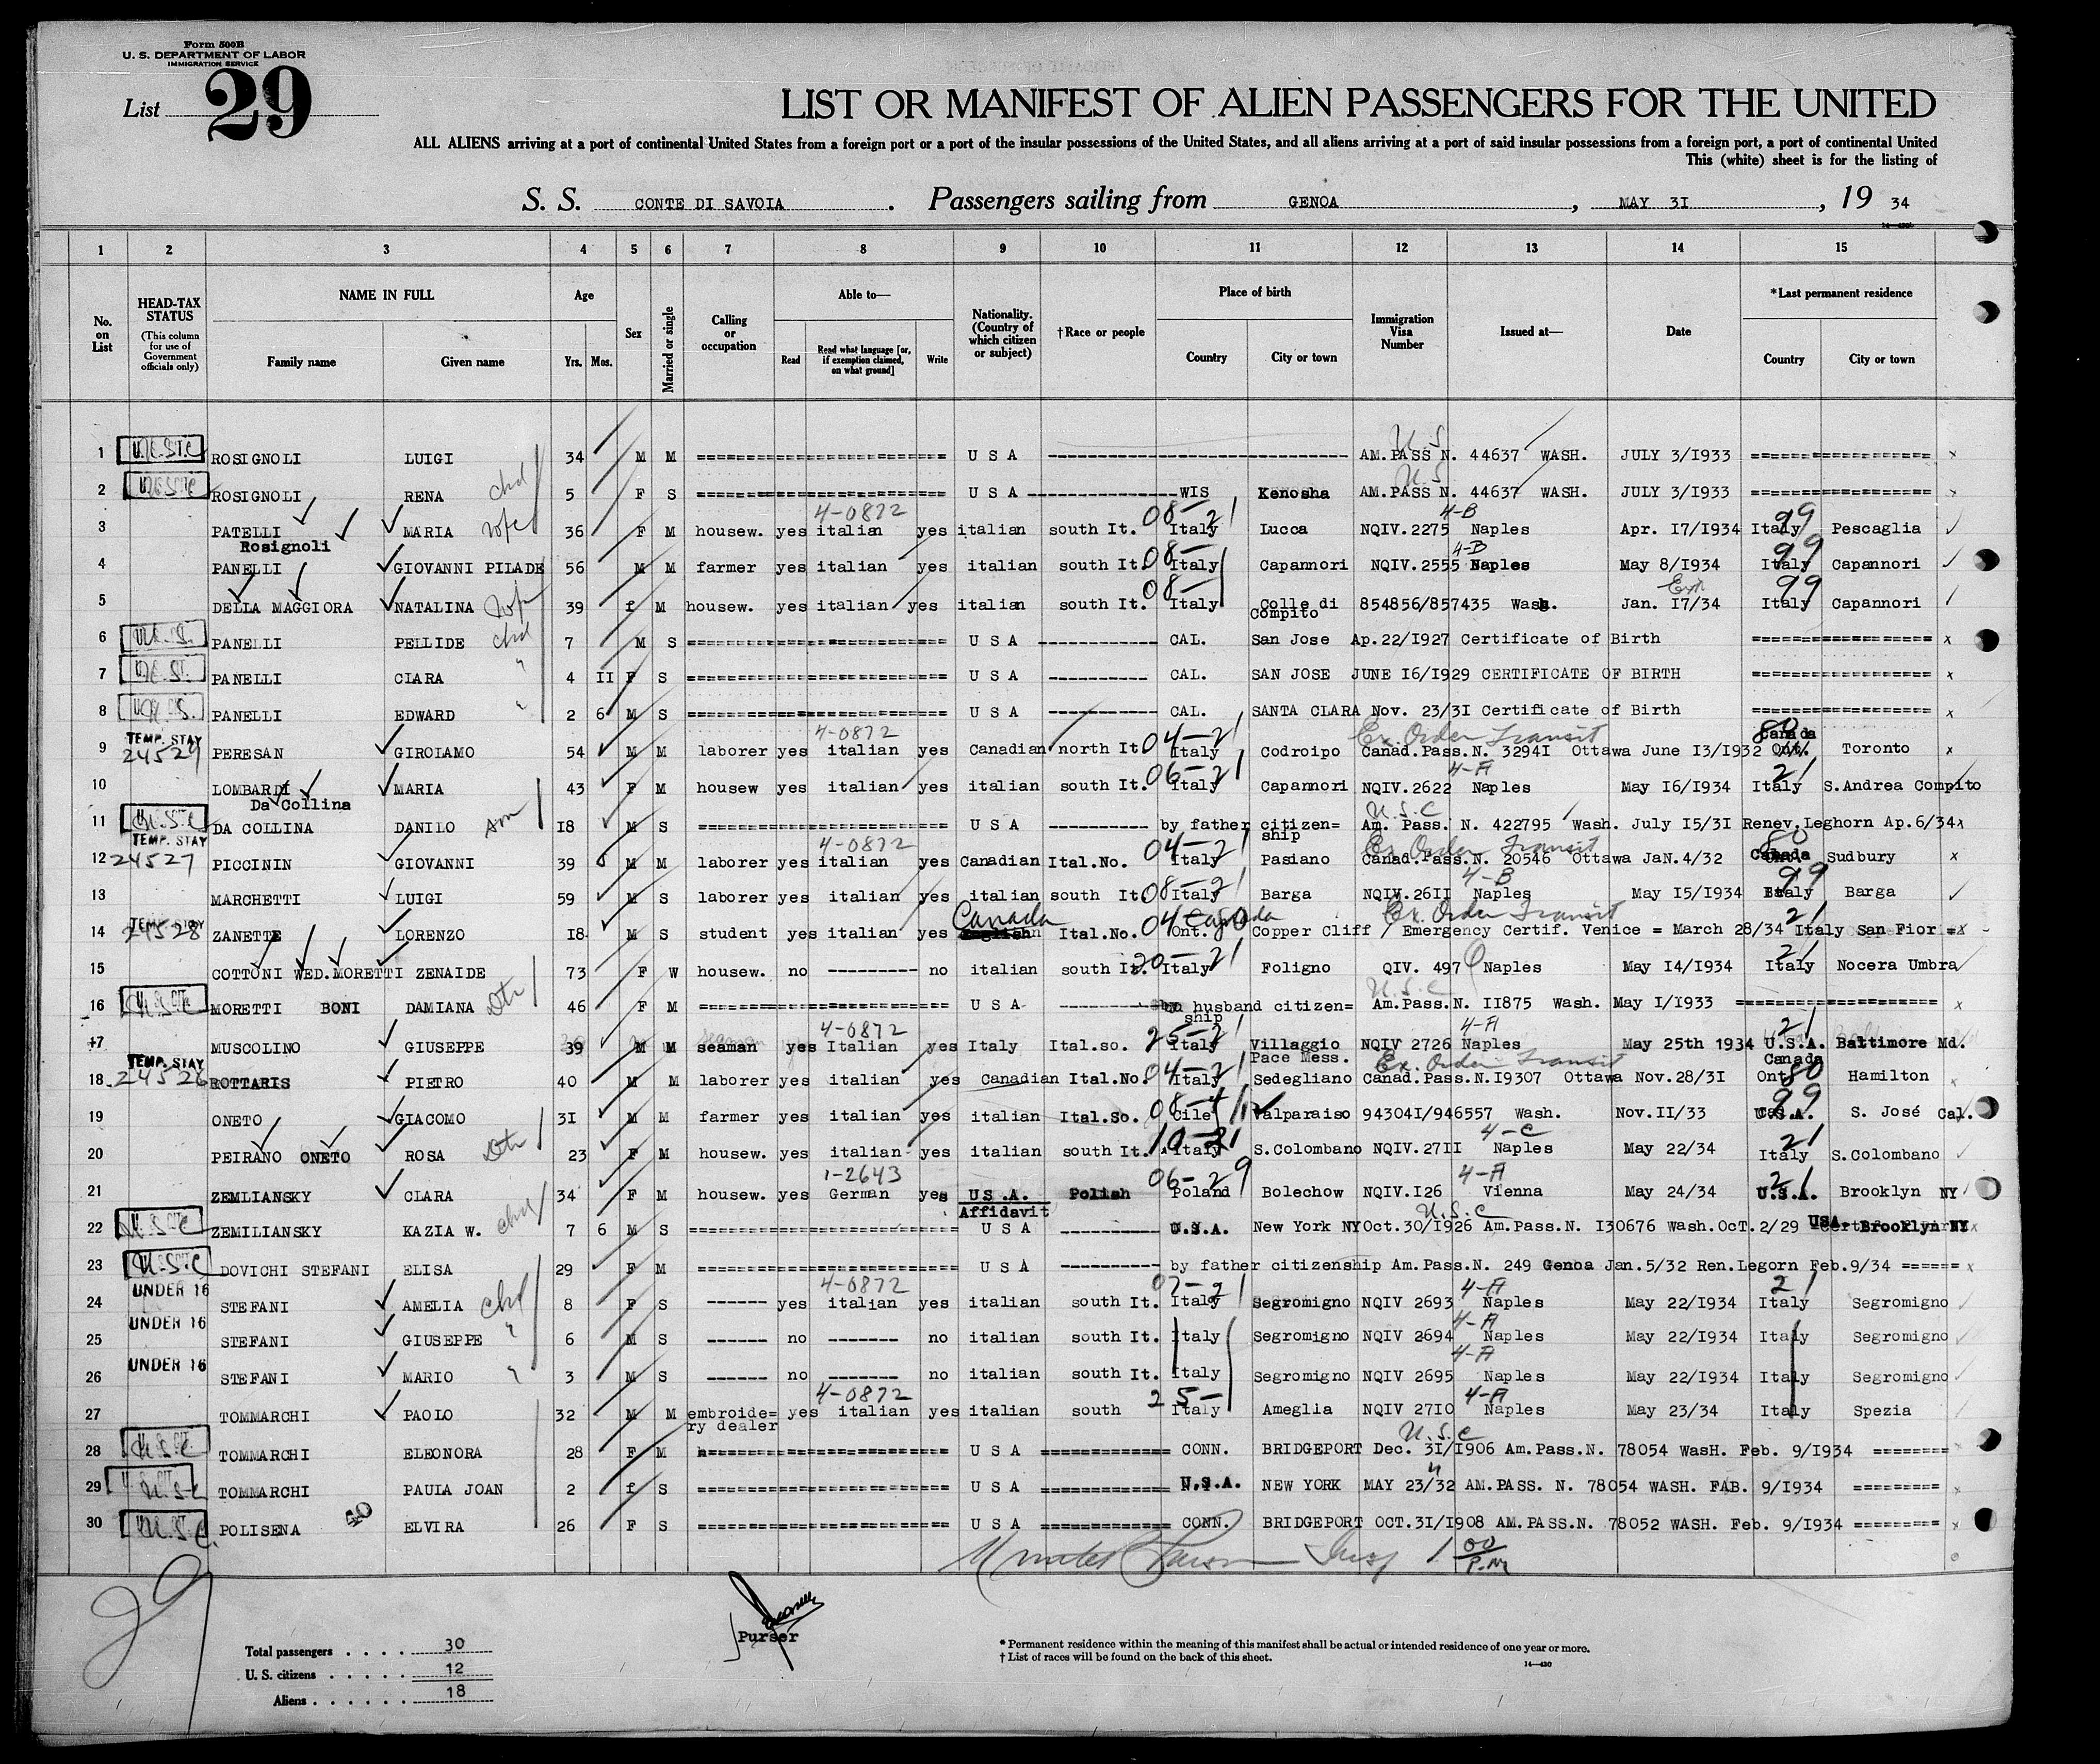 Form 500B
U. S. DEPARTMENT OF LABOR
IMMIGRATION SERVICE
List 29
LIST OR MANIFEST OF ALIEN PASSENGERS FOR THE UNITED
ALL ALIENS arriving at a port of continental United States from a foreign port or a port of the insular possessions of the United States, and all aliens arriving at a port of said insular possessions from a foreign port, a port of continental United
This (white) sheet is for the listing of
S. S. CONTE DI SAVOIA . Passengers sailing from GENOA , MAY 3I , 19 34
1 2 3 4 5 6 7 8 9 10 11 12 13 14 15
No. on List
HEAD-TAX STATUS
(This column for use of Government officials only)
NAME IN FULL
Family name Given name
Age
Yrs. Mos.
Sex
Married or single
Calling or occupation
Able to—
Read
Read what language [or, if exemption claimed, on what ground]
Write
Nationality. (Country of which citizen or subject)
†Race or people
Place of birth
Country City or town
Immigration Visa Number
Issued at—
Date
*Last permanent residence
Country City or town
U.S.
1 U.S.C ROSIGNOLI LUIGI 34 M M ===== U S A ----- AM.PASS N. 44637 WASH. JULY 3/I933 ===== x
U.S.
2 ROSIGNOLI RENA chd 5 F S ===== U S A ----- WIS Kenosha AM.PASS N. 44637 WASH. JULY 3/I933 ===== x
4-0872 08-21 4-B 99
3 PATELLI MARIA wife 36 F M housew. yes italian yes italian south It. Italy Lucca NQIV.2275 Naples Apr. I7/I934 Italy Pescaglia
Rosignoli
08- 4-B 99
4 PANELLI GIOVANNI PILADE 56 M M farmer yes italian yes italian south It. Italy Capannori NQIV.2555 Naples May 8/I934 Italy Capannori
08- 99
5 DELLA MAGGIORA NATALINA wife 39 f M housew. yes italian yes italian south It. Italy Colle di Compito 854856/857435 Wash. Jan. I7/34 Italy Capannori
6 PANELLI PELLIDE chd 7 M S ===== U S A ----- CAL. San Jose Ap.22/I927 Certificate of Birth ===== x
7 PANELLI CLARA " 4 II F S ===== U S A ----- CAL. SAN JOSE JUNE I6/I929 CERTIFICATE OF BIRTH ===== x
8 PANELLI EDWARD " 2 6 M S ===== U S A ----- CAL. SANTA CLARA Nov. 23/3I Certificate of Birth ===== x
TEMP. STAY 4-0872 04-21 Ex. Order Transit 80 Canada
9 24529 PERESAN GIROIAMO 54 M M laborer yes italian yes Canadian north It. Italy Codroipo Canad.Pass.N. 3294I Ottawa June I3/I932 Toronto x
06-21 4-A 21
10 LOMBARDI MARIA 43 F M housew yes italian yes italian south It. Italy Capannori NQIV.2622 Naples May I6/I934 Italy S.Andrea Compito
Da Collina
U.S.C
11 U.S.C DA COLLINA DANILO son I8 M S ===== U S A ----- by father citizen= ship Am. Pass. N. 422795 Wash. July I5/3I Renev.Leghorn Ap.6/34x
TEMP. STAY 4-0872 04-21 Ex. Order Transit 80
12 24527 PICCININ GIOVANNI 39 M M laborer yes italian yes Canadian Ital.No. Italy Pasiano Canad.Pass.N. 20546 Ottawa JaN.4/32 Canada Sudbury x
08-21 4-B 99
13 MARCHETTI LUIGI 59 M S laborer yes italian yes italian south It. Italy Barga NQIV.26II Naples May I5/I934 Italy Barga
TEMP. STAY Canada 04 Canada Ex. Order Transit 21
14 24528 ZANETTE LORENZO I8 M S student yes italian yes Ital.No. Ont. Copper Cliff / Emergency Certif. Venice = March 28/34 Italy San Fior =x
20-21 21
15 COTTONI WED.MORETTI ZENAIDE 73 F W housew. no ----- no italian south It. Italy Foligno QIV. 497 Naples May I4/I934 Italy Nocera Umbra
U.S.C
16 MORETTI BONI DAMIANA Dtr 46 F M ===== U S A ----- husband citizen= ship Am.Pass.N. II875 Wash. May I/I933 ===== x
4-0872 25-21 4-A 21
17 MUSCOLINO GIUSEPPE 39 M M seaman yes Italian yes Italy Ital.so. Italy Villaggio Pace Mess. NQIV 2726 Naples May 25th 1934 U.S.A. Baltimore Md.
TEMP. STAY 04-21 Ex. Order Transit Canada 80
18 24526 ROTTARIS PIETRO 40 M M laborer yes italian yes Canadian Ital.No. Italy Sedegliano Canad.Pass.N.I9307 Ottawa Nov.28/3I Ont Hamilton x
08-41 99
19 ONETO GIACOMO 3I M M farmer yes italian yes italian Ital.So. Cile Valparaiso 94304I/946557 Wash. Nov.II/33 U.S.A. S. José Cal.
10-21 4-C 21
20 PEIRANO ONETO ROSA Dtr 23 F M housew. yes italian yes italian south It. Italy S.Colombano NQIV.27II Naples May 22/34 Italy S.Colombano
1-2643 06-29 4-A 21
21 ZEMLIANSKY CLARA 34 F M housew. yes German yes US.A. Polish Poland Bolechow NQIV.I26 Vienna May 24/34 U.S.A. Brooklyn NY
Affidavit U.S.C
22 U.S.C ZEMILIANSKY KAZIA W. chd 7 6 M S ===== U S A ----- U.S.A. New York NY Oct.30/I926 Am.Pass.N. I30676 Wash.OcT.2/29 USA Brooklyn NY
23 U.S.C DOVICHI STEFANI ELISA 29 F M ===== U S A ----- by father citizenship Am.Pass.N. 249 Genoa Jan.5/32 Ren.Legorn Feb.9/34 ====== x
UNDER 16 4-0872 07-21 4-A 21
24 STEFANI AMELIA chd 8 F S ------ yes italian yes italian south It. Italy Segromigno NQIV 2693 Naples May 22/I934 Italy Segromigno
UNDER 16 4-A
25 STEFANI GIUSEPPE " 6 M S ------ no ------- no italian south It. Italy Segromigno NQIV 2694 Naples May 22/I934 Italy Segromigno
UNDER 16 4-A
26 STEFANI MARIO " 3 M S ------ no ------- no italian south It. Italy Segromigno NQIV 2695 Naples May 22/I934 Italy Segromigno
4-0872 25- 4-A
27 TOMMARCHI PAOLO 32 M M embroide= ry dealer yes italian yes italian south Italy Ameglia NQIV 27I0 Naples May 23/34 Italy Spezia
U.S.C
28 U.S.C TOMMARCHI ELEONORA 28 F M ===== U S A ===== CONN. BRIDGEPORT Dec. 3I/I906 Am.Pass.N. 78054 WasH. Feb. 9/I934 =====
29 U.S.C TOMMARCHI PAULA JOAN 2 f S ===== U S A ===== U.S.A. NEW YORK MAY 23/32 AM.PASS. N. 78054 WASH. FAB. 9/I934 =====
30 U.S.C. POLISENA ELVIRA 26 F S ===== U S A ===== CONN. BRIDGEPORT OCT.3I/I908 AM.PASS.N. 78052 WASH. Feb. 9/I934 ===== x
1 00 P.M.
29
Purser
Total passengers . . . . 30
U. S. citizens . . . . . 12
Aliens . . . . . . 18
* Permanent residence within the meaning of this manifest shall be actual or intended residence of one year or more.
† List of races will be found on the back of this sheet.
14—430